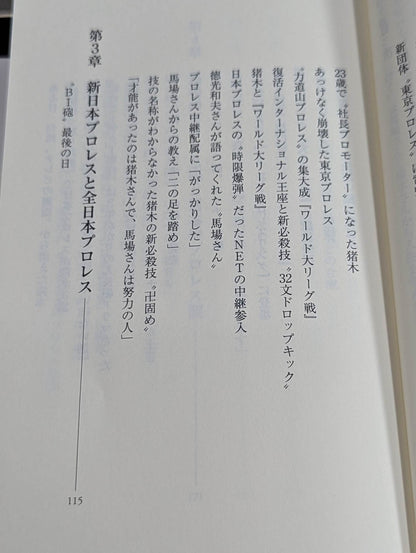 新団体「東京プロレス」に
23歳で〝社長プロモーター〟になった猪木
あっけなく崩壊した東京プロレス
〝力道山プロレス〟の集大成『ワールド大リーグ戦』
復活インターナショナル王座と新必殺技〝32文ドロップキック〟
猪木と『ワールド大リーグ戦』
日本プロレスの〝時限爆弾〟だったNETの中継参入
徳光和夫さんが語ってくれた〝馬場さん〟
プロレス中継配属に「がっかりした」
馬場さんからの教え「二の足を踏め」
技の名称がわからなかった猪木の新必殺技〝卍固め〟
「才能があったのは猪木さんで、馬場さんは努力の人」
第3章 新日本プロレスと全日本プロレス
〝BI砲〟最後の日
115